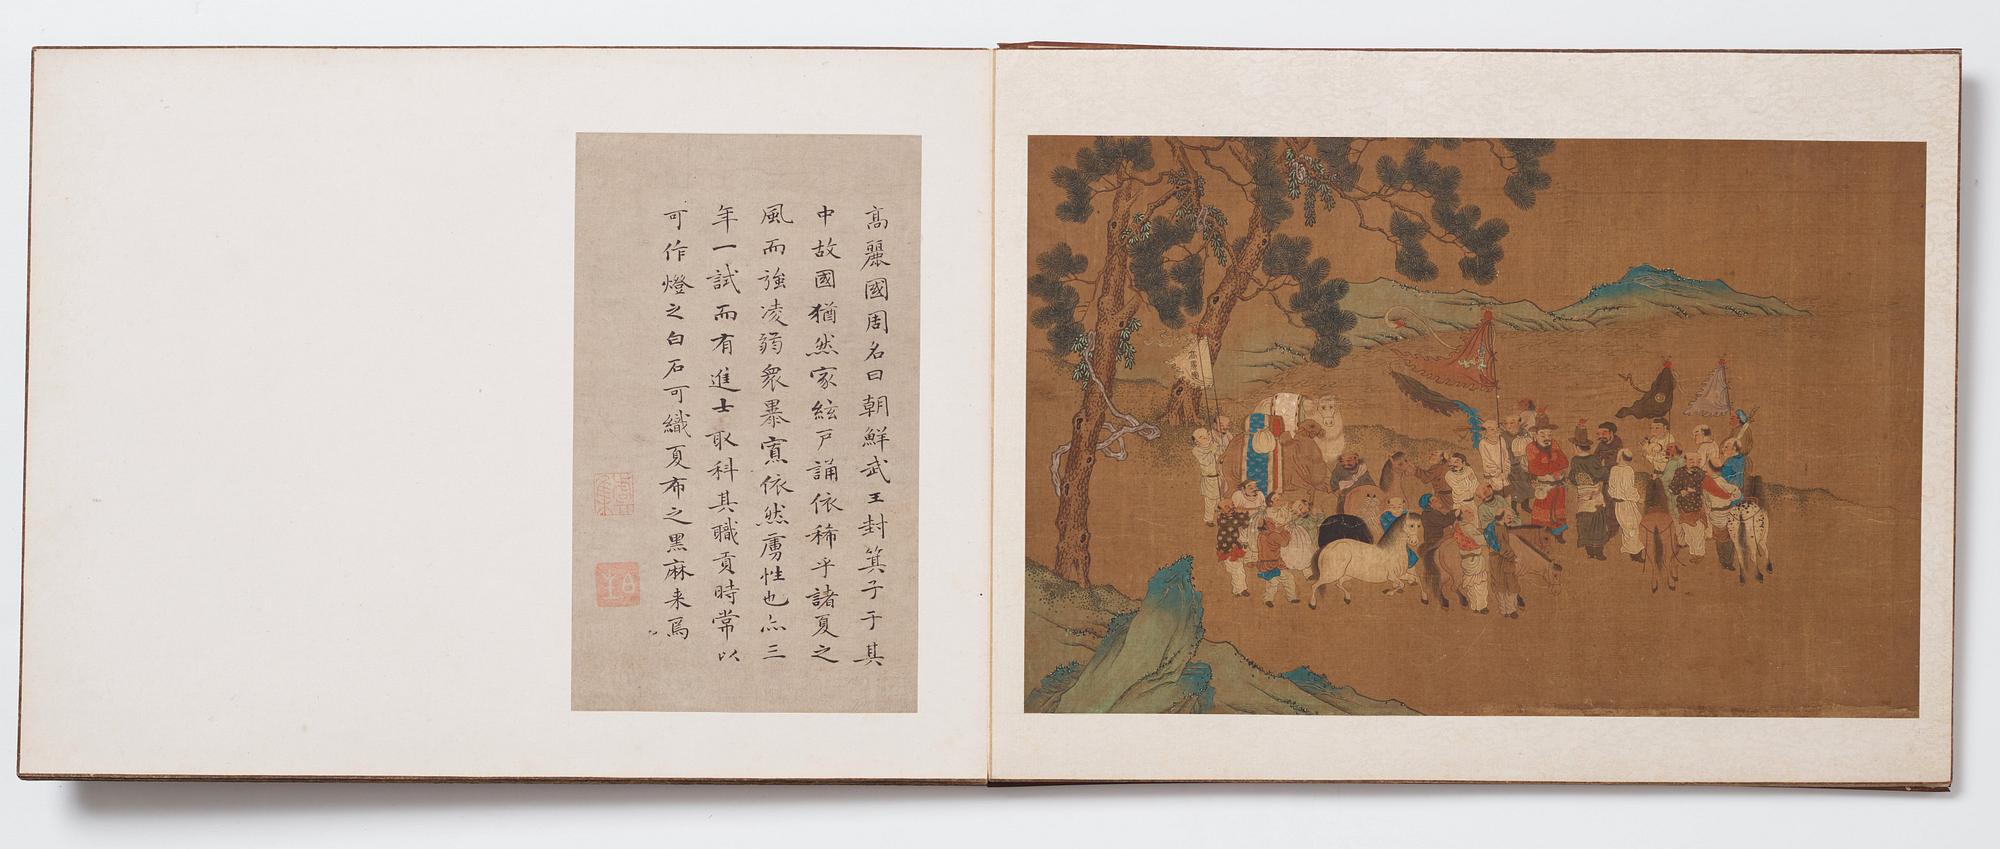 高麗國周名曰朝鮮武王封箕子于其
中故國猶然家絃戸誦依稀乎諸夏之
風而強凌弱衆暴寡依然虜性也亦三
年一試而有進士取科其職貢時常以
可作燈之白石可織夏布之黒麻来焉
高麗國